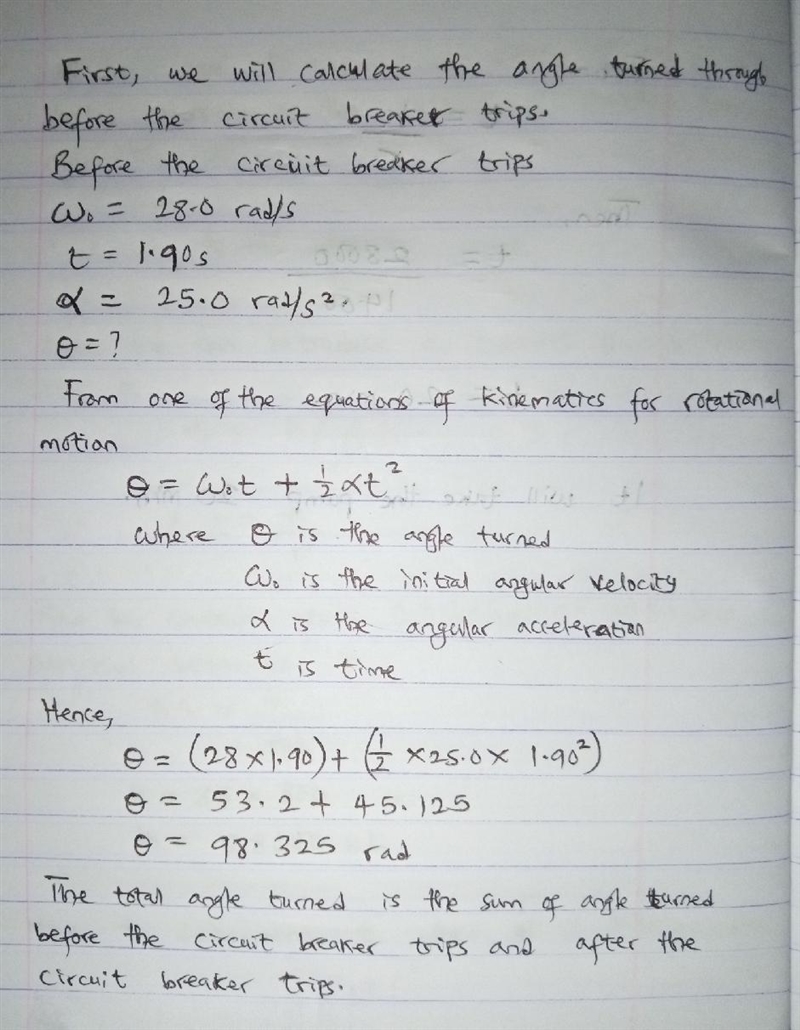 First, we will calculate the angle turned through
before the circuit breaker trips.
Before the circuit breaker trips
ω₀ = 28.0 rad/s
t = 1.90s
α = 25.0 rad/s².
θ = ?
From one of the equations of kinematics for rotational
motion
θ = ω₀t + ½αt²
where θ is the angle turned
ω₀ is the initial angular velocity
α is the angular acceleration
t is time
Hence,
θ = (28 × 1.90) + (½ × 25.0 × 1.90²)
θ = 53.2 + 45.125
θ = 98.325 rad
The total angle turned is the sum of angle turned
before the circuit breaker trips and after the
circuit breaker trips.